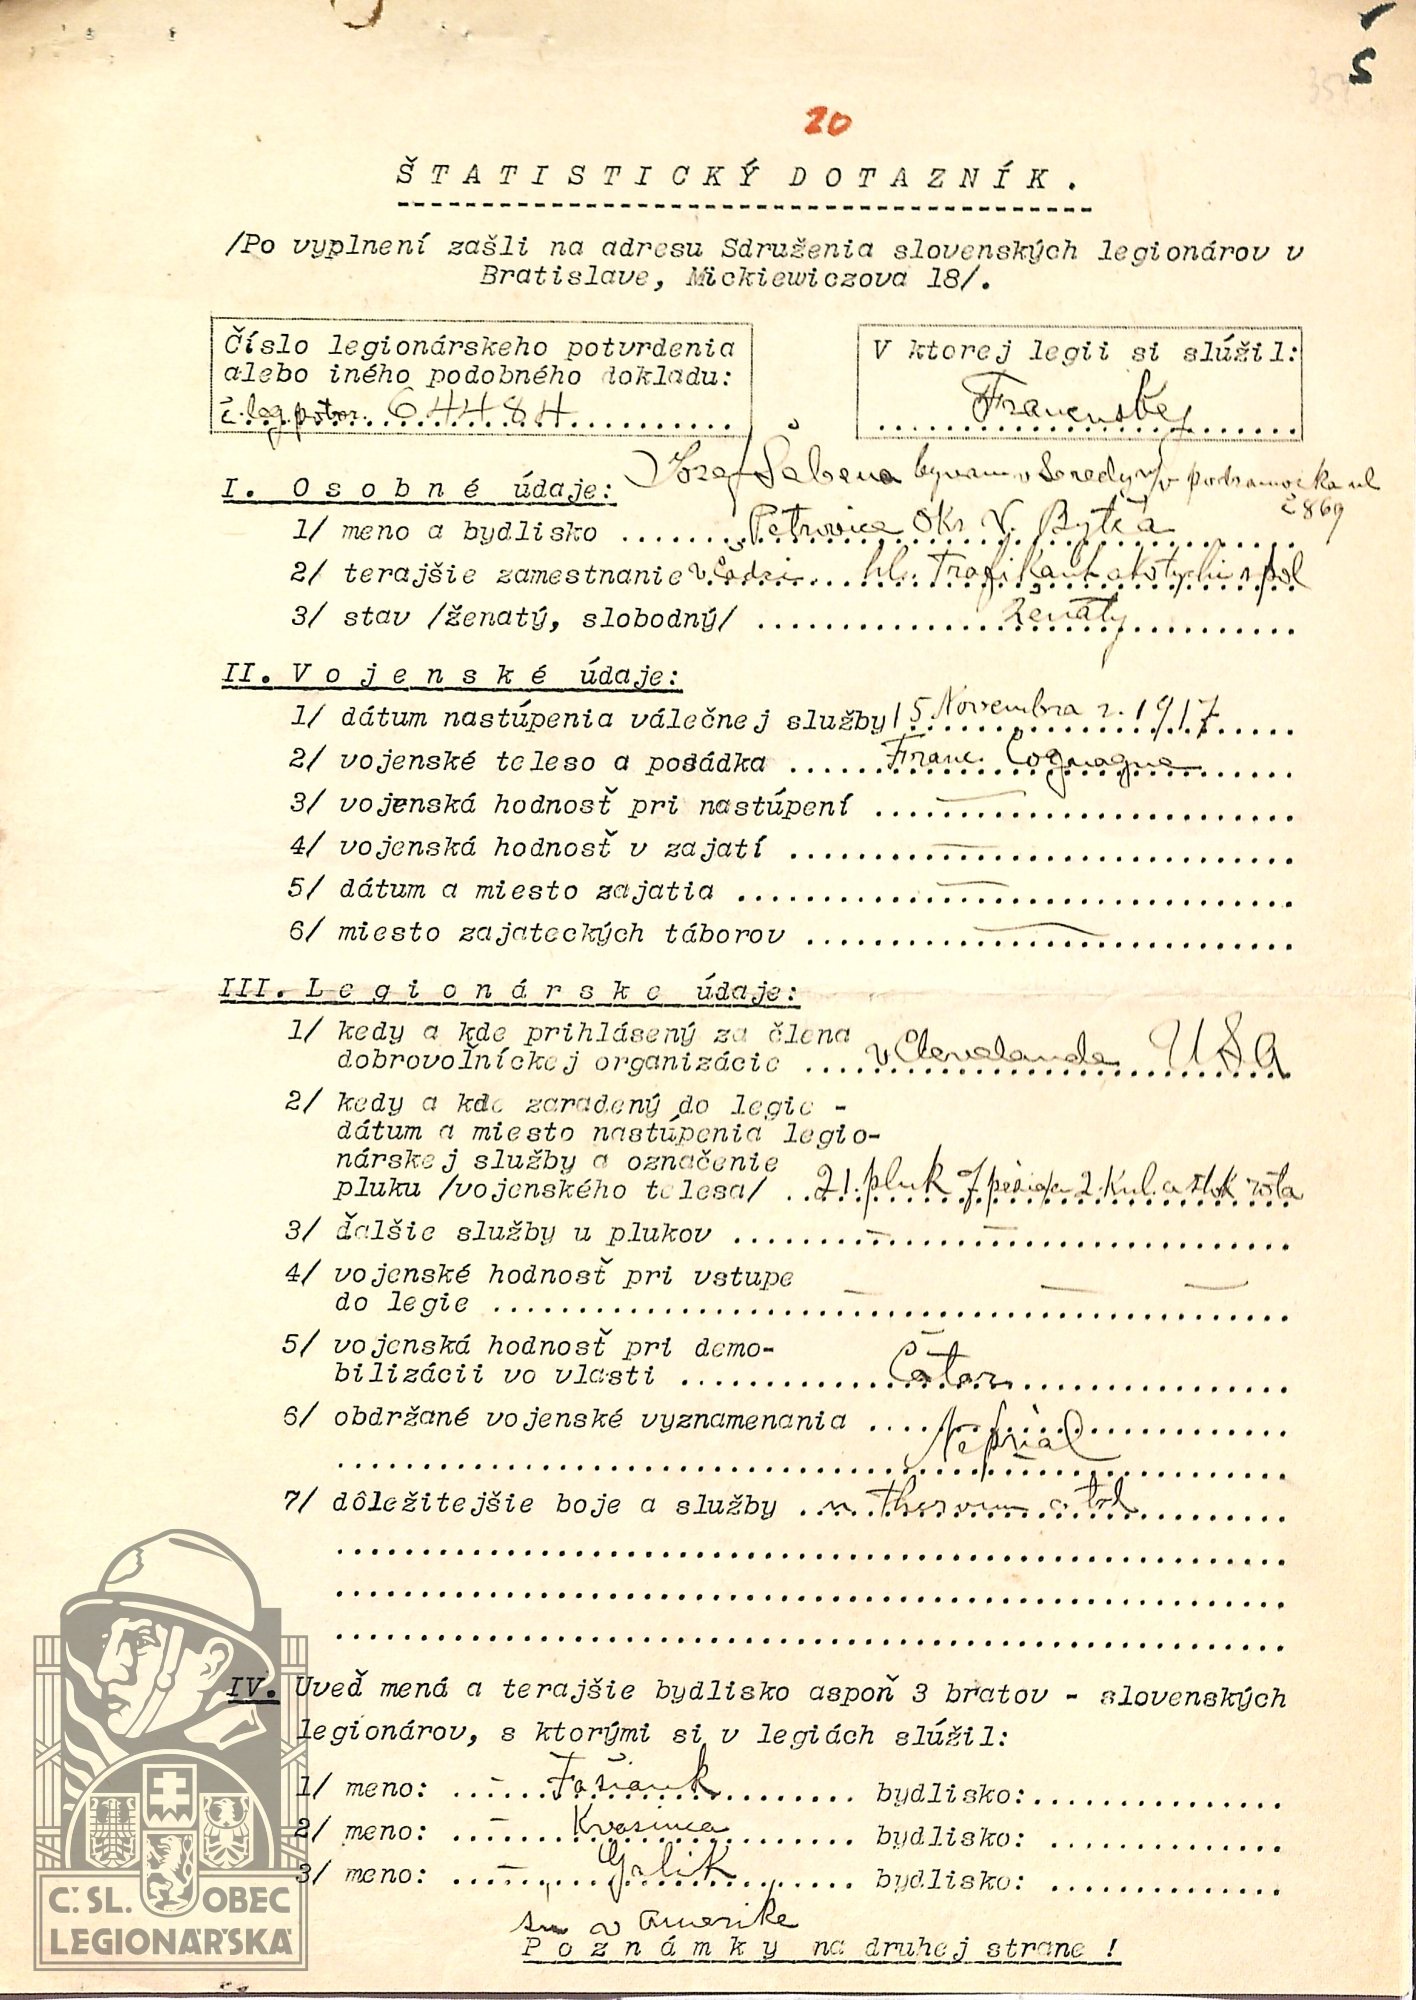 Š
354
20
ŠTATISTICKÝ DOTAZNÍK.
/Po vyplnení zašli na adresu Sdruženia slovenských legionárov v
Bratislave, Mickiewiczova 18/.
Číslo legionárskeho potvrdenia
alebo iného podobného dokladu:
č. leg. potvr. 64484
V ktorej legii si slúžil:
Francuskej
Jozef Šebena bývam v Seredy v podzamocka ul
č 869
I. Osobné údaje:
1/ meno a bydlisko Petrovice Okr V. Bytča
2/ terajšie zamestnanie hl. Trafikant
3/ stav /ženatý, slobodný/ ženatý
II. Vojenské údaje:
1/ dátum nastúpenia válečnej služby 15 Novembra r. 1917
2/ vojenské teleso a posádka Franc. Cognaque
3/ vojenská hodnosť pri nastúpení —
4/ vojenská hodnosť v zajatí —
5/ dátum a miesto zajatia —
6/ miesto zajateckých táborov —
III. Legionárske údaje:
1/ kedy a kde prihlásený za člena
dobrovoľníckej organizácie v Clevelande USA
2/ kedy a kde zaradený do legie -
dátum a miesto nastúpenia legio-
nárskej služby a označenie
pluku /vojenského telesa/ 21. pluk 2. kul. rota
3/ ďalšie služby u plukov — —
4/ vojenské hodnosť pri vstupe
do legie — — —
5/ vojenská hodnosť pri demo-
bilizácii vo vlasti Čatar
6/ obdržané vojenské vyznamenania
Nepřial
7/ dôležitejšie boje a služby
IV. Uveď mená a terajšie bydlisko aspoň 3 bratov - slovenských
legionárov, s ktorými si v legiách slúžil:
1/ meno: - Fašiank bydlisko:
2/ meno: - Kvasinca bydlisko:
3/ meno: - Grlik bydlisko:
su v Amerike
Poznámky na druhej strane !
Č.SL. OBEC
LEGIONÁŘSKÁ